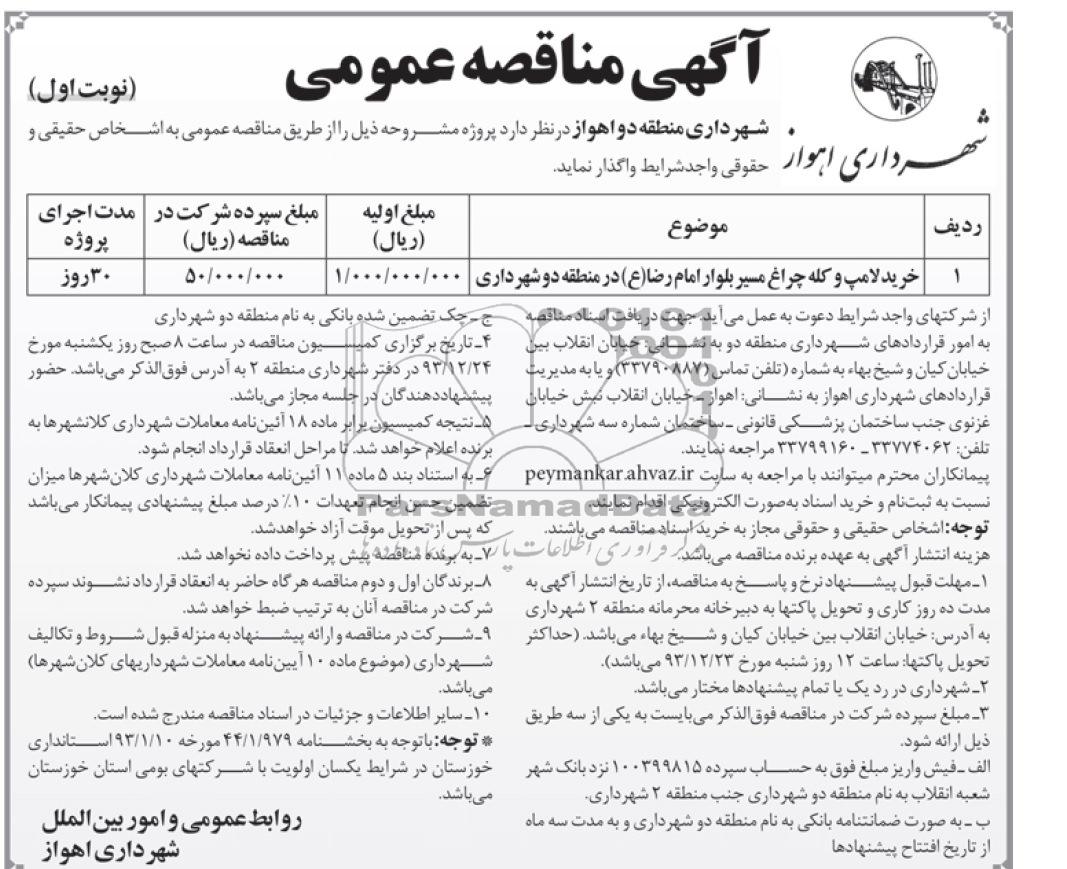 آگهی مناقصه عمومی
(نوبت اول)
شهرداری اهواز
شهرداری منطقه دو اهواز در نظر دارد پروژه مشروحه ذیل را از طریق مناقصه عمومی به اشخاص حقیقی و
حقوقی واجد شرایط واگذار نماید.
ردیف | موضوع | مبلغ اولیه (ریال) | مبلغ سپرده شرکت در مناقصه (ریال) | مدت اجرای پروژه
۱ | خرید لامپ و کله چراغ مسیر بلوار امام رضا(ع) در منطقه دو شهرداری | ۱/۰۰۰/۰۰۰/۰۰۰ | ۵۰/۰۰۰/۰۰۰ | ۳۰ روز
از شرکتهای واجد شرایط دعوت به عمل می‌آید جهت دریافت اسناد مناقصه
به امور قراردادهای شهرداری منطقه دو به نشانی: خیابان انقلاب بین
خیابان کیان و شیخ بهاء به شماره (تلفن تماس ۳۳۷۹۰۸۸۷) و یا به مدیریت
قراردادهای شهرداری اهواز به نشانی: اهواز ـ خیابان انقلاب نبش خیابان
غزنوی جنب ساختمان پزشکی قانونی ـ ساختمان شماره سه شهرداری ـ
تلفن: ۳۳۷۷۴۰۶۲ ـ ۳۳۷۹۹۱۶۰ مراجعه نمایند.
پیمانکاران محترم میتوانند با مراجعه به سایت peymankar.ahvaz.ir
نسبت به ثبت‌نام و خرید اسناد به‌صورت الکترونیکی اقدام نمایند.
توجه: اشخاص حقیقی و حقوقی مجاز به خرید اسناد مناقصه می‌باشند.
هزینه انتشار آگهی به عهده برنده مناقصه می‌باشد.
۱ـ مهلت قبول پیشنهاد نرخ و پاسخ به مناقصه، از تاریخ انتشار آگهی به
مدت ده روز کاری و تحویل پاکتها به دبیرخانه محرمانه منطقه ۲ شهرداری
به آدرس: خیابان انقلاب بین خیابان کیان و شیخ بهاء می‌باشد. (حداکثر
تحویل پاکتها: ساعت ۱۲ روز شنبه مورخ ۹۳/۱۲/۲۳ می‌باشد).
۲ـ شهرداری در رد یک یا تمام پیشنهادها مختار می‌باشد.
۳ـ مبلغ سپرده شرکت در مناقصه فوق‌الذکر می‌بایست به یکی از سه طریق
ذیل ارائه شود.
الف ـ فیش واریز مبلغ فوق به حساب سپرده ۱۰۰۳۹۹۸۱۵ نزد بانک شهر
شعبه انقلاب به نام منطقه دو شهرداری جنب منطقه ۲ شهرداری.
ب ـ به صورت ضمانتنامه بانکی به نام منطقه دو شهرداری و به مدت سه ماه
از تاریخ افتتاح پیشنهادها
ج ـ چک تضمین شده بانکی به نام منطقه دو شهرداری
۴ـ تاریخ برگزاری کمیسیون مناقصه در ساعت ۸ صبح روز یکشنبه مورخ
۹۳/۱۲/۲۴ در دفتر شهرداری منطقه ۲ به آدرس فوق‌الذکر می‌باشد. حضور
پیشنهاددهندگان در جلسه مجاز می‌باشد.
۵ـ نتیجه کمیسیون برابر ماده ۱۸ آئین‌نامه معاملات شهرداری کلانشهرها به
برنده اعلام خواهد شد. تا مراحل انعقاد قرارداد انجام شود.
۶ـ به استناد بند ۵ ماده ۱۱ آئین‌نامه معاملات شهرداری کلان‌شهرها میزان
تضمین حسن انجام تعهدات ۱۰٪ درصد مبلغ پیشنهادی پیمانکار می‌باشد
که پس از تحویل موقت آزاد خواهدشد.
۷ـ به برنده مناقصه پیش پرداخت داده نخواهد شد.
۸ـ برندگان اول و دوم مناقصه هرگاه حاضر به انعقاد قرارداد نشوند سپرده
شرکت در مناقصه آنان به ترتیب ضبط خواهد شد.
۹ـ شرکت در مناقصه و ارائه پیشنهاد به منزله قبول شروط و تکالیف
شهرداری (موضوع ماده ۱۰ آیین‌نامه معاملات شهرداریهای کلان‌شهرها)
می‌باشد.
۱۰ـ سایر اطلاعات و جزئیات در اسناد مناقصه مندرج شده است.
* توجه: باتوجه به بخشنامه ۴۴/۱/۹۷۹ مورخه ۹۳/۱/۱۰ استانداری
خوزستان در شرایط یکسان اولویت با شرکتهای بومی استان خوزستان
می‌باشد.
روابط عمومی و امور بین الملل
شهرداری اهواز
ParsNamadData